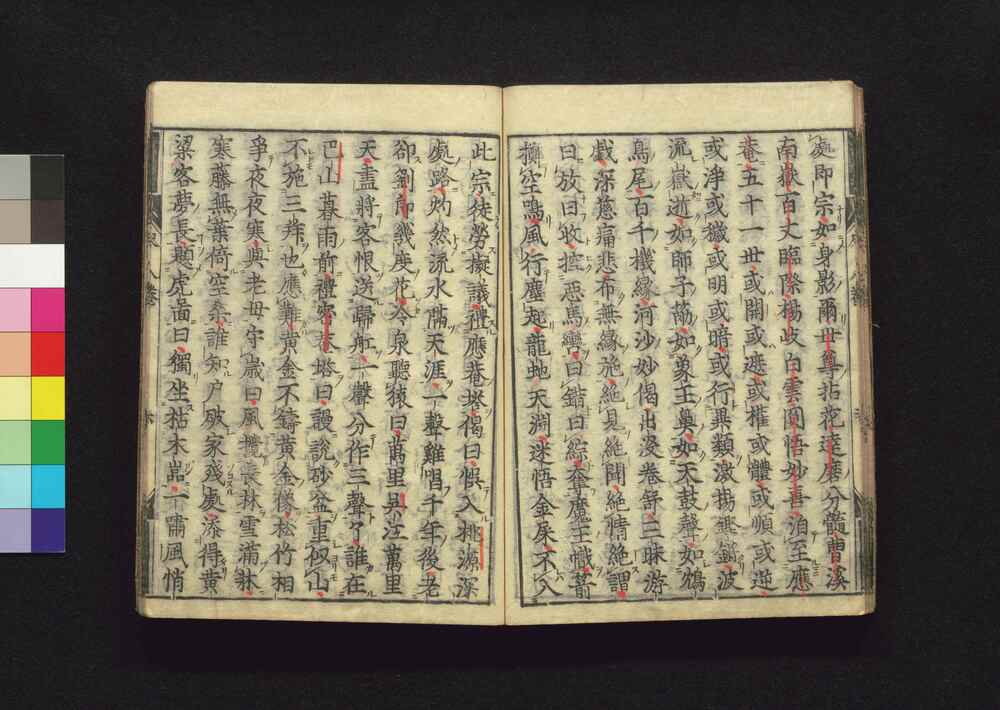 處即宗如身影爾世尊拈花達磨分髓曹溪
南嶽百丈臨際楊岐白雲圓悟妙喜泊至應
菴五十一世或開或遮或權或體或順或逆
或淨或穢或明或暗或行異類激揚無鍛波
流嶽逝如師子筋如象王鼻如天鼓聲如鴆
鳥尾百千機緣河沙妙偈出沒卷舒三昧游
戲深慈痛悲布無緣施絶見絶聞絶情絶謂
曰放曰收控惡馬轡曰錯曰綜奪魔王幟箭
擲空鳴風行塵起龍虵天淵迷悟金屎不入
此宗徒勞擬議禮應菴塔偈曰悞入桃源深
處路灼然流水隔天涯一聲雞唱千年後老
卻劉郎幾度花冷泉聽猿曰萬里吳江萬里
天盡將客恨送歸舡一聲分作三聲了誰在
巴山暮雨前禮密菴塔曰謾說砂盆重似山
不施三拜也應難黃金不鑄黃金像松竹相
爭夜夜寒與老母守歲曰風攪長林雪滿牀
寒藤無葉倚空桑誰知户破家殘處添得黃
梁客夢長題虎啚曰獨坐枯木嵓一嘯風悄